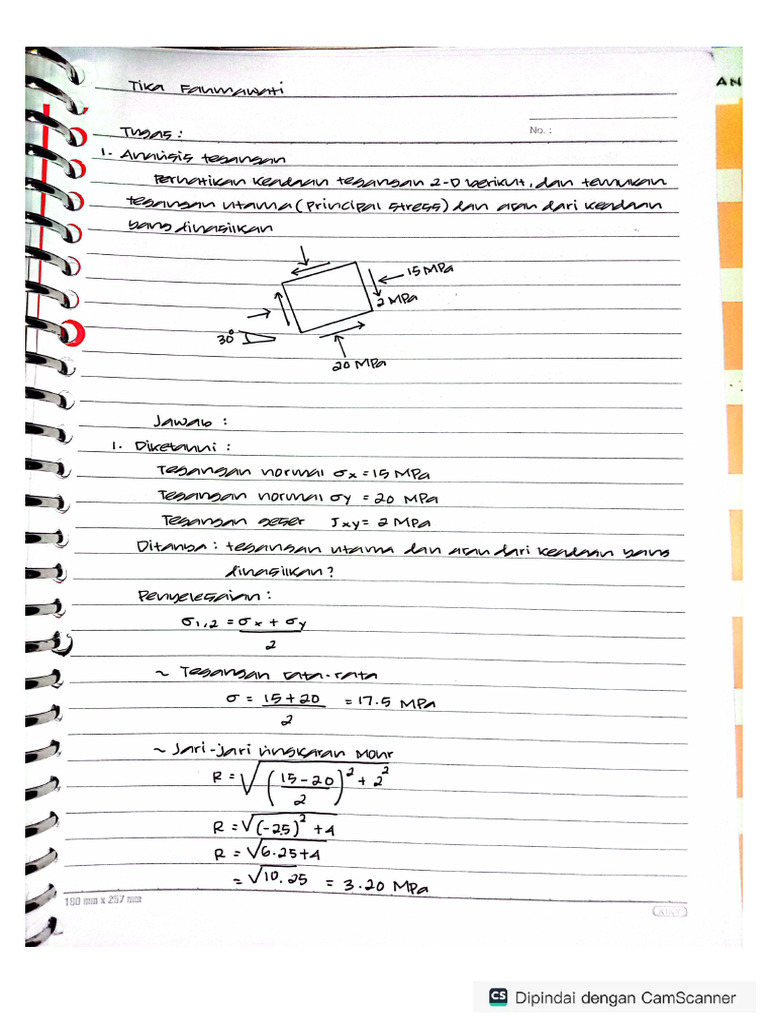 Tika Fahmawati
AN
No. :
Tugas :
1. Analisis tegangan
Perhatikan keadaan tegangan 2-D berikut, dan temukan
tegangan utama (principal stress) dan arah dari keadaan
yang dihasilkan
15 MPa
2 MPa
30°
20 MPa
Jawab :
1. Diketahui :
Tegangan normal σx = 15 MPa
Tegangan normal σy = 20 MPa
Tegangan geser Jxy = 2 MPa
Ditanya : tegangan utama dan arah dari keadaan yang
dihasilkan?
Penyelesaian :
σ1,2 = σx + σy / 2
~ Tegangan rata-rata
σ = 15 + 20 / 2 = 17.5 MPa
~ Jari-jari lingkaran Mohr
R = √(15 - 20 / 2)² + 2²
R = √(-2.5)² + 4
R = √6.25+4
= √10.25 = 3.20 MPa
180 mm x 257 mm
KIKY
CS Dipindai dengan CamScanner